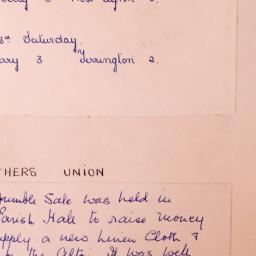 3rd Saturday.
ary 3 Torrington 2.
THERS UNION
umble Sale was held in
Parish Hall to raise money
upply a new linen Cloth &
It was well